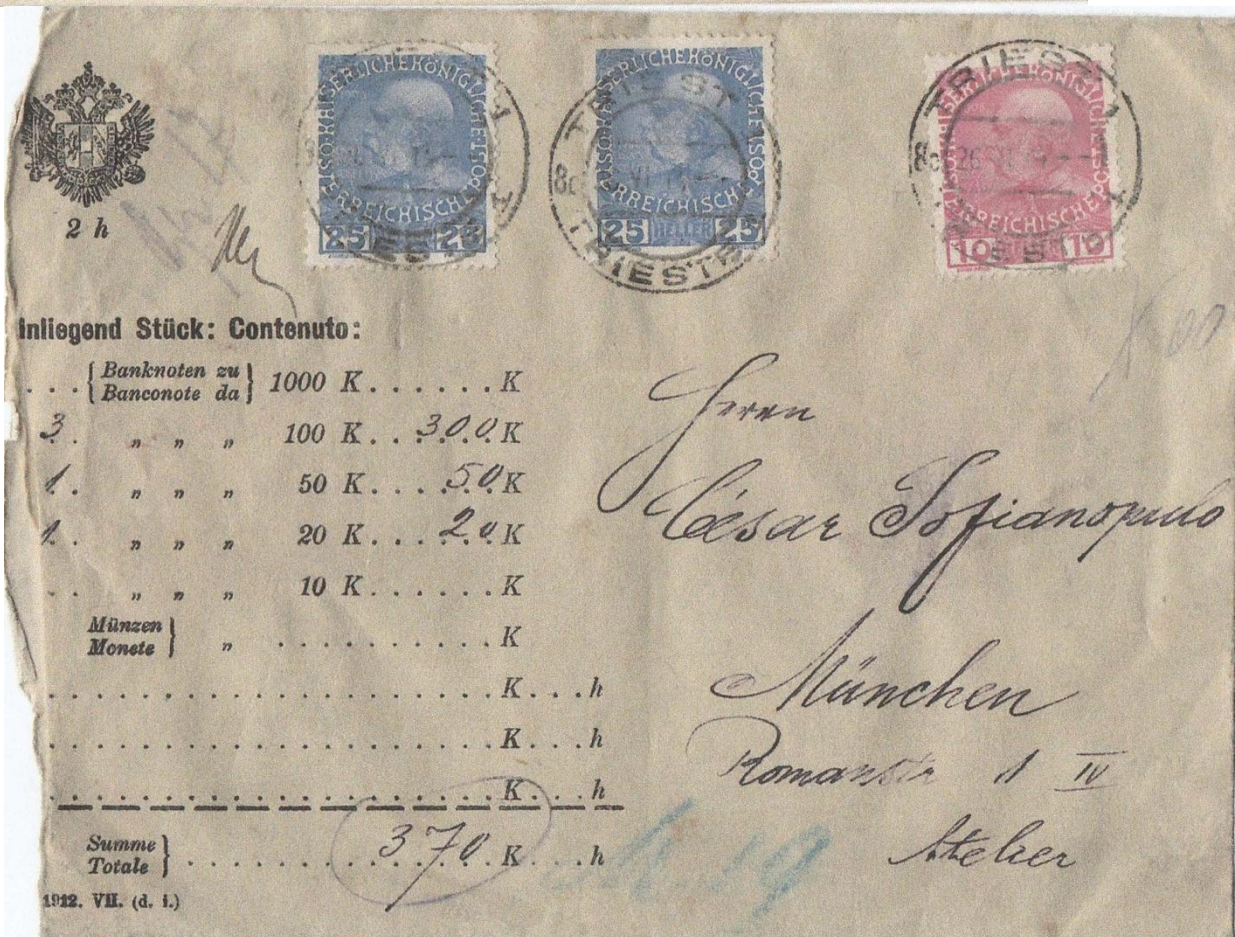 KAISERLICHE KÖNIGLICHE ÖSTERREICHISCHE POST
25 25
TRIEST 1
KAISERLICHE KÖNIGLICHE ÖSTERREICHISCHE POST
25 HELLER 25
TRIEST 1
TRIESTE
8c
KAISERLICHE KÖNIGLICHE ÖSTERREICHISCHE POST
10 10
TRIEST 1
TRIESTE 1
8c 26
2 h
Inliegend Stück: Contenuto:
. . . { Banknoten zu
Banconote da } 1000 K . . . . . . K
3. „ „ „ 100 K . . . 300. K
1. „ „ „ 50 K . . . . 50 K
1. „ „ „ 20 K . . . . 20 K
. . „ „ „ 10 K . . . . . . K
Münzen
Monete } „ . . . . . . . . . . K
. . . . . . . . . . . . . . . . . . . . K . . . h
. . . . . . . . . . . . . . . . . . . . K . . . h
. . . . . . . . . . . . . . . . . . . . K . . . h
Summe
Totale } . . . . . . . 370 . K . . . h
1912. VII. (d. i.)
Herrn
César Sofianopulo
München
Romanstr 1 IV
Atelier